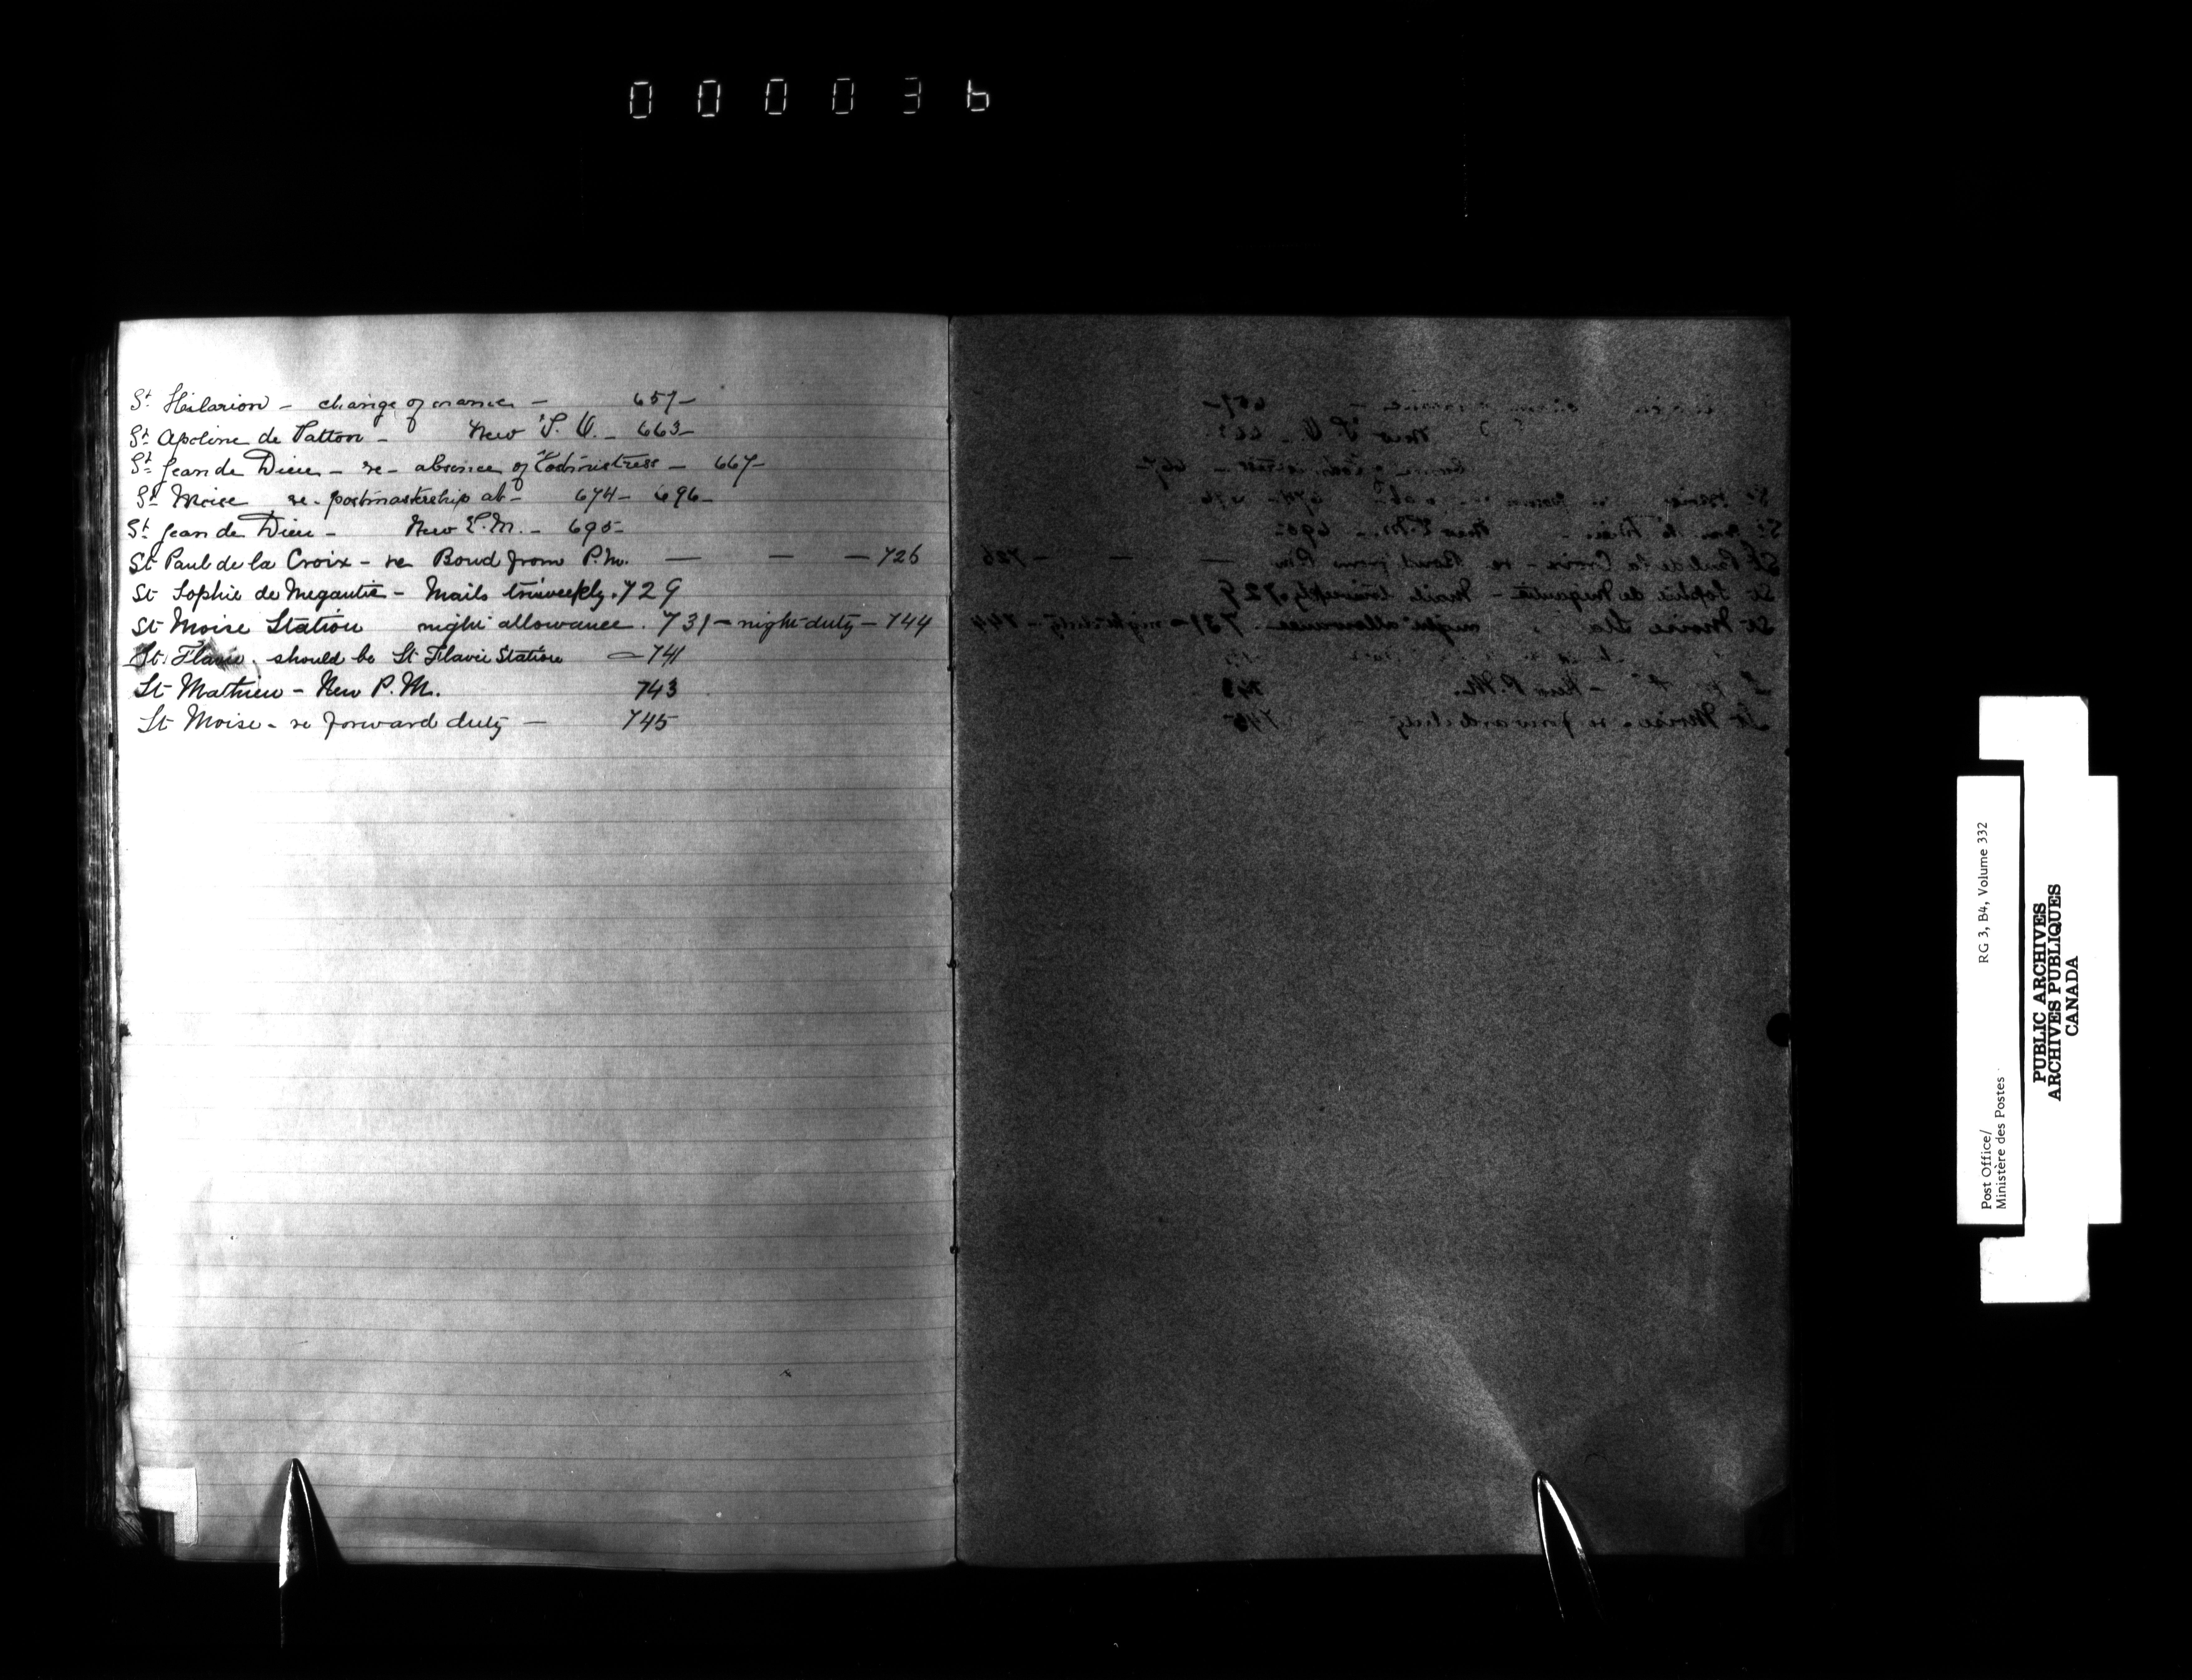 000036
St Hilarion - change of name - 657-
St Apoline de Patton - New P. O. - 663-
St Jean de Dieu - re - absence of Postmistress - 667-
St Moise re - postmastership at - 674- 696-
St Jean de Dieu - New P.M. - 695-
St Paul de la Croix - re Bond from P.M. — — — 726
St Sophie de Megantic - Mails triweekly. 729
St Moise Station night allowance. 731 - night duty - 744
St. Flavie. should be St Flavie Station — 741
St Mathieu - New P.M. 743
St Moise - re forward duty — 745
RG 3, B4, Volume 332
Post Office/
Ministère des Postes
PUBLIC ARCHIVES
ARCHIVES PUBLIQUES
CANADA